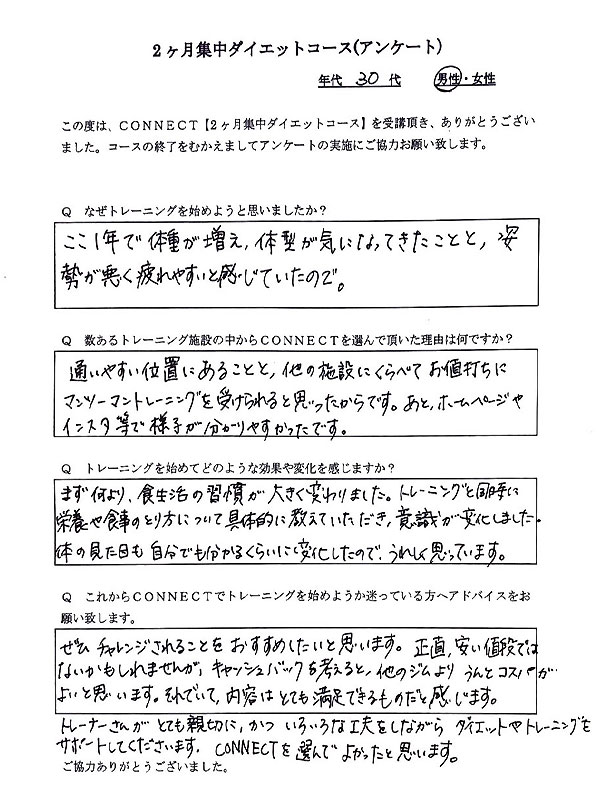 2ヶ月集中ダイエットコース(アンケート)
年代 30 代 男性・女性
この度は、CONNECT【2ヶ月集中ダイエットコース】を受講頂き、ありがとうござい
ました。コースの終了をむかえましてアンケートの実施にご協力お願い致します。
Q なぜトレーニングを始めようと思いましたか？
ここ1年で体重が増え、体型が気になってきたことと、姿
勢が悪く疲れやすいと感じていたので。
Q 数あるトレーニング施設の中からCONNECTを選んで頂いた理由は何ですか？
通いやすい位置にあることと、他の施設にくらべてお値打ちに
マンツーマントレーニングを受けられると思ったからです。あと、ホームページや
インスタ等で様子が分かりやすかったです。
Q トレーニングを始めてどのような効果や変化を感じますか？
まず何より、食生活の習慣が大きく変わりました。トレーニングと同時に
栄養や食事のとり方について具体的に教えていただき、意識が変化しました。
体の見た目も自分でも分かるくらいに変化したので、うれしく思っています。
Q これからCONNECTでトレーニングを始めようか迷っている方へアドバイスをお
願い致します。
ぜひチャレンジされることをおすすめしたいと思います。正直、安い値段では
ないかもしれませんが、キャッシュバックを考えると、他のジムよりうんとコスパが
よいと思います。それでいて、内容はとても満足できるものだと感じます。
トレーナーさんがとても親切に、かついろいろな工夫をしながらダイエットやトレーニングを
サポートしてくださいます。CONNECTを選んでよかったと思います。
ご協力ありがとうございました。